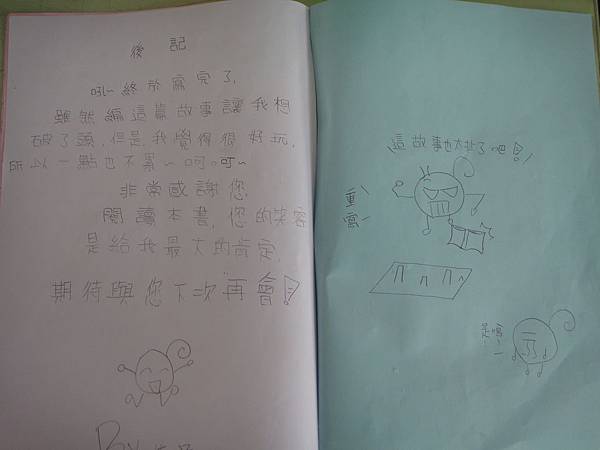 後記
吼~終於寫完了,
雖然編這篇故事讓我想
破了頭,但是我覺得很好玩,
所以一點也不累~呵。呵~
非常感謝您
閱讀本書,您的笑容
是給我最大的肯定,
期待與您下次"再會!
By
這故事也太扯了吧!
重寫~
是嗎~